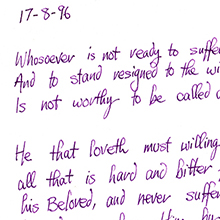 17-8-96
Whosoever is not ready to suffe
And to stand resigned to the wi
Is not worthy to be called
He that loveth must willing
all that is hard and bitter
his Beloved, and never suffe